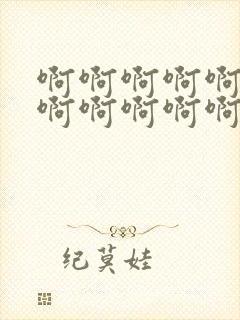 啊啊啊啊啊
啊啊啊啊啊
纪莫娃